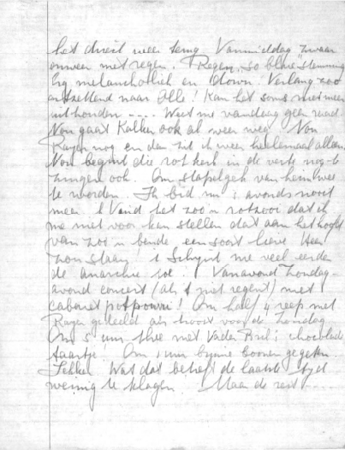 het direct weer terug. Vanmiddag zwaar
onweer met regen. "Regen, so blue" stemming
Erg melancholiek en "down". Verlang zoo
ontzettend naar Olle! Kan het soms niet meer
uithouden .... Weet me vandaag geen raad
Von gaat Kolken ook al weer mee. Von
nog en dan zit ik weer heelemaal alleen.
Nou begint die rotkerk in de verte nog te
zingen ook. Om stapelgek van heimwee
te worden. Ik bid m'n 's avonds nooit
meer. Vind het zoo'n rotzooi dat ik
me niet voor kan stellen dat aan het hoofd
van zoo'n bende een soort lieve Heer
zou staan! 't Schijnt me veel eerder
de anarchie toe! Vanavond Zondag-
avond concert (als 't niet regent) met
cabaret potpourri! Om half 4 reep met
als troost voor de Zondag
Om 5 uur thee met Vader Brul's chocolade
taartje! Om uur bruine boonen gegeten
Wat dat betreft de laatste tijd
weinig te klagen Maar de rest .......